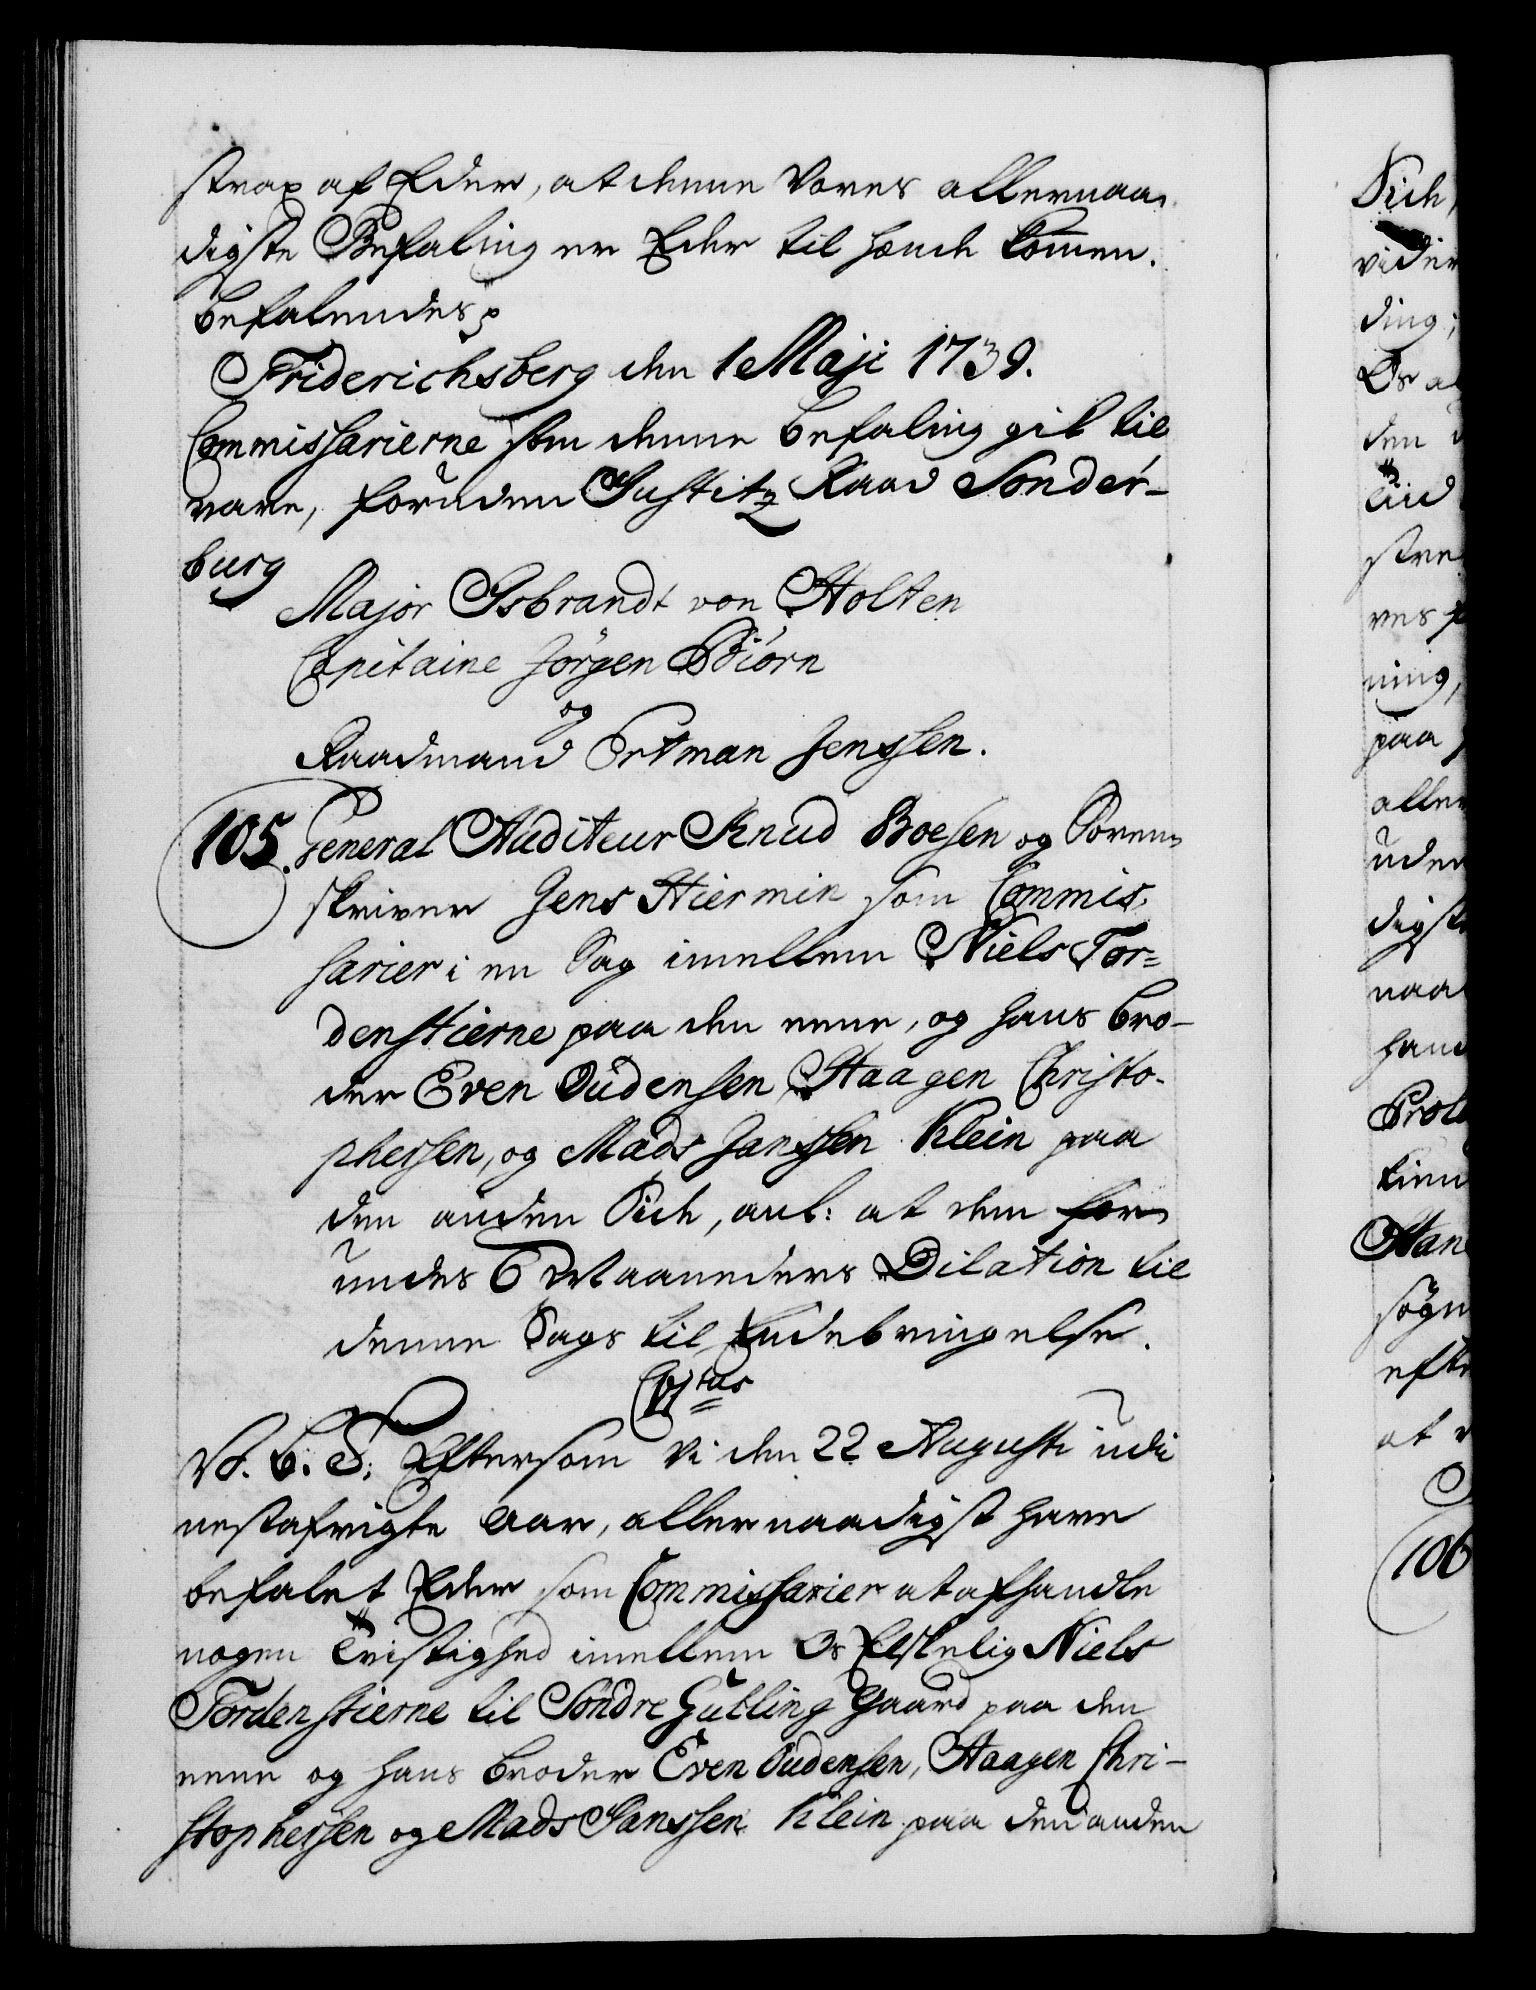 strax af Eder, at denne Vores allernaa-
digste Befaling er Eder til hænde kom̄en.
Befalendes
Friderichsberg den 1 Maji 1739.
Commissarierne som denne befaling gik til
vare, foruden Justitz Raad Sonder-
burg
Major Isbrandt von Holten
Capitaine Jørgen Biørn
og
Raadmand Ortman Jenssen.
105. General Auditeur Knud Boesen og Soren-
skriver Jens Hiermin som Commis-
sarier i en Sag imellem Niels Tor-
denstierne paa den eene, og hans bro-
der Even Oudensen, Haagen Christo-
phersen, og Mads Janssen Klein paa
den anden Side, anl: at dem
undes 6 Maaneders Dilation til
denne Sags til Endebringelse.
C 5tus
V. G. T. Eftersom Vi den 22 Augusti udi
nestafvigte Aar, allernaadigst have
befalet Eder som Commissarier at afhandle
nogen Tvistighed imellem Os Elskelig Niels
Tordenstierne til Søndre Gutling Gaard paa den
eene og hans broder Even Oudensen, Haagen Chri-
stophersen og Mads Janssen Klein paa den anden
Side,
ding;
Os al
den
paa
uden
digst
naa
efter
at
106